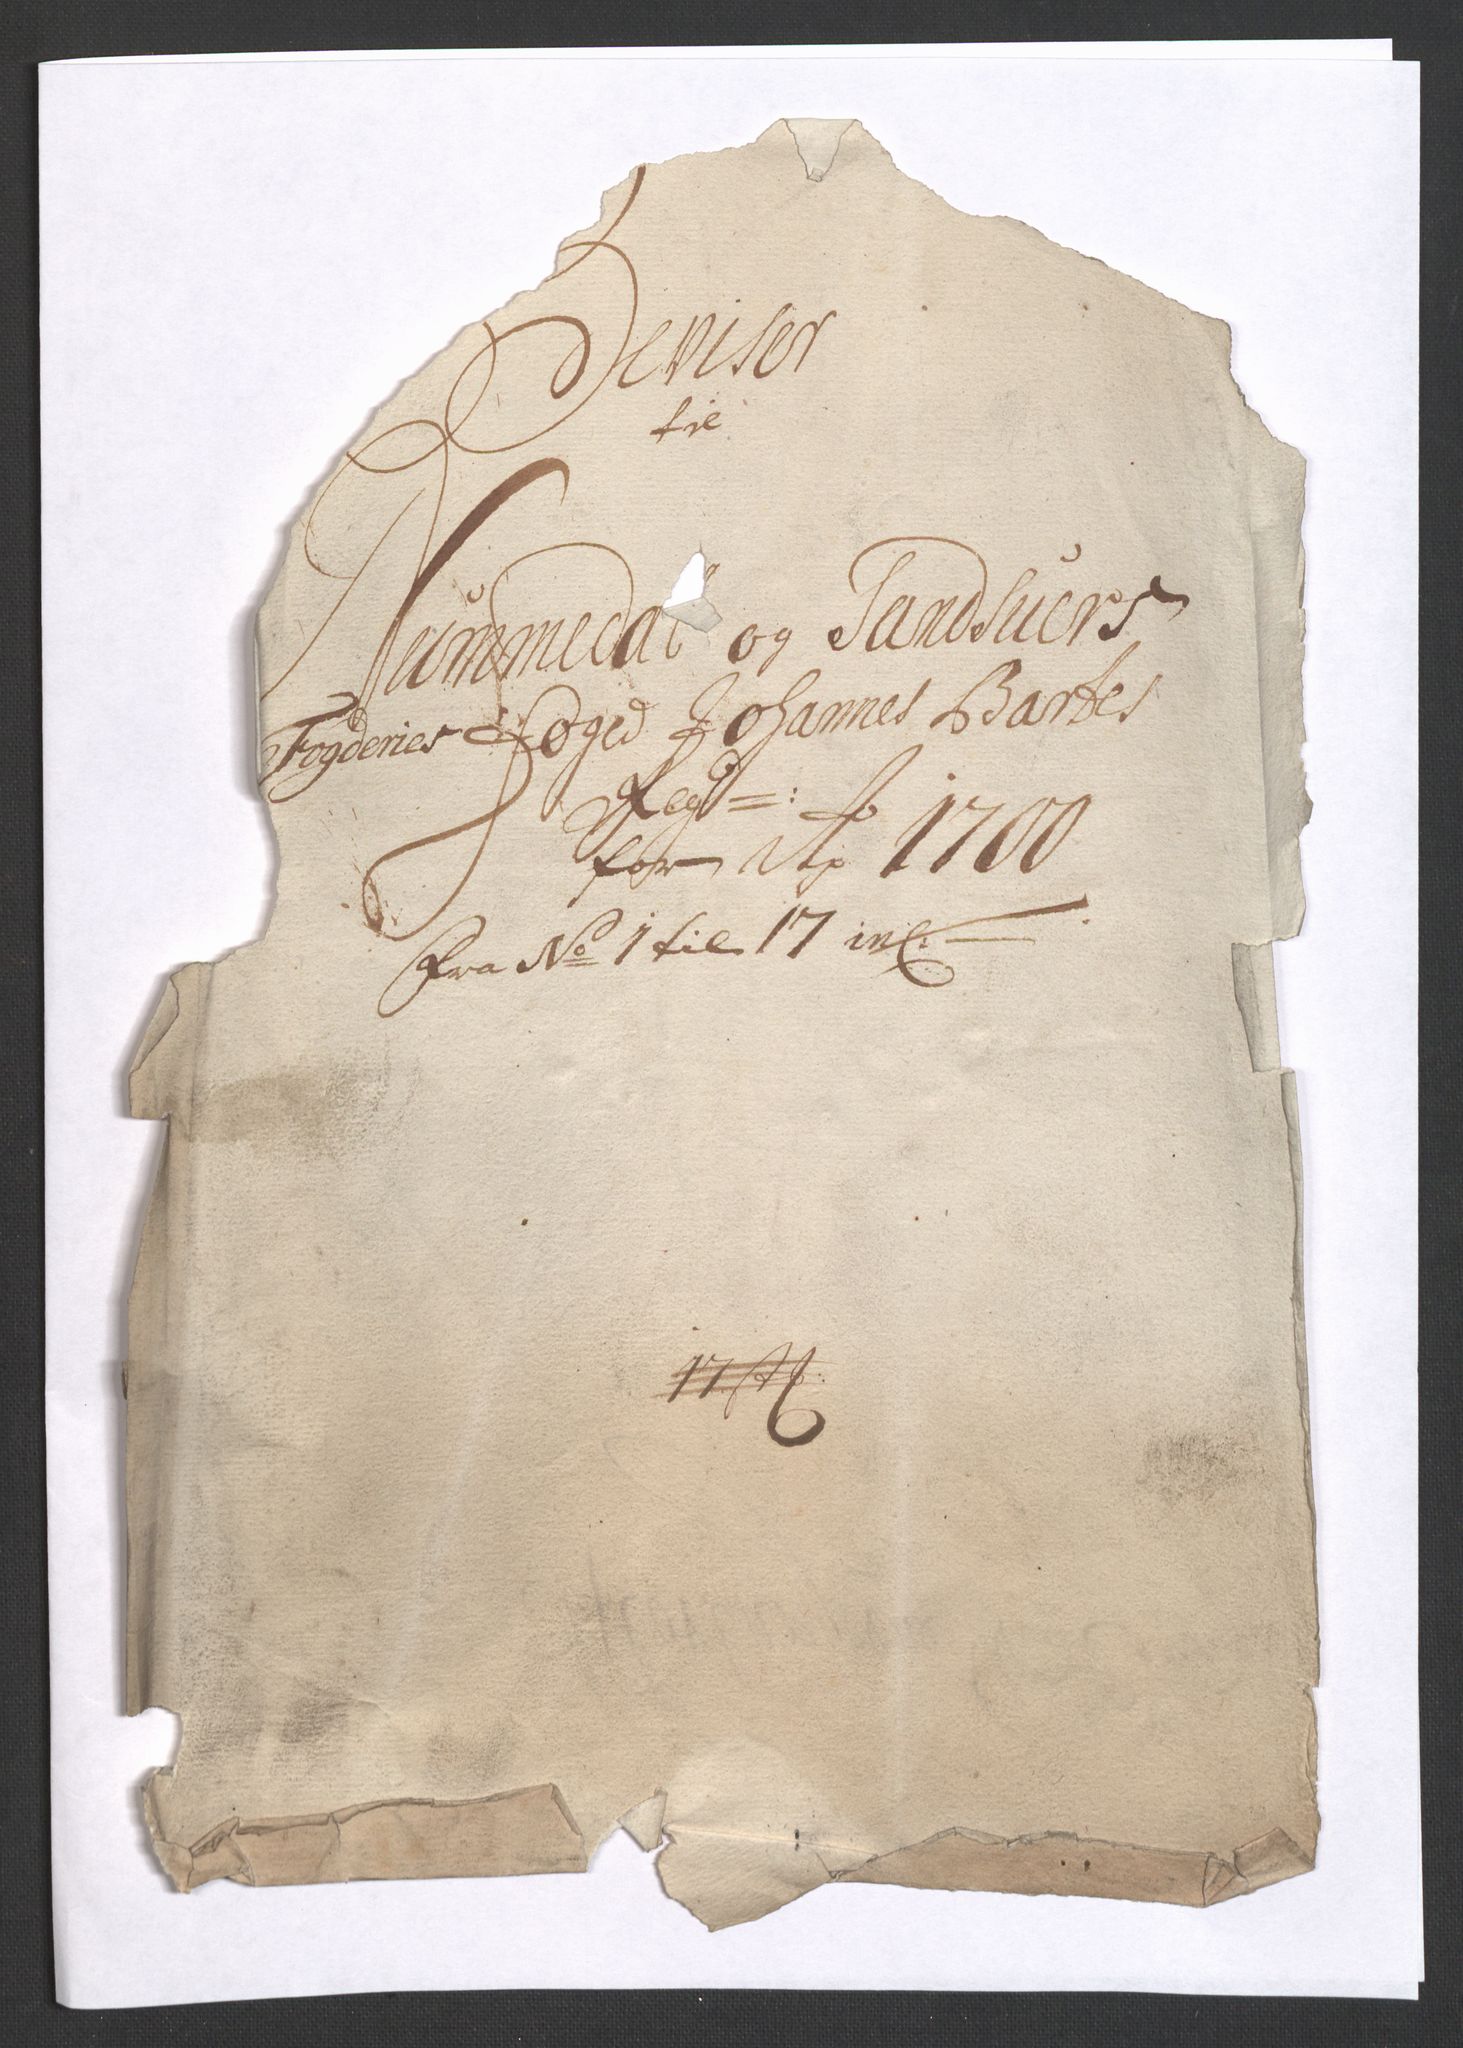 Beviser
til
Nummedal og Sandsuers
Fogderies Foged Johannes Bartes
Regd=:
for Ao 1700
Fra No 1 til 17 incl:
17